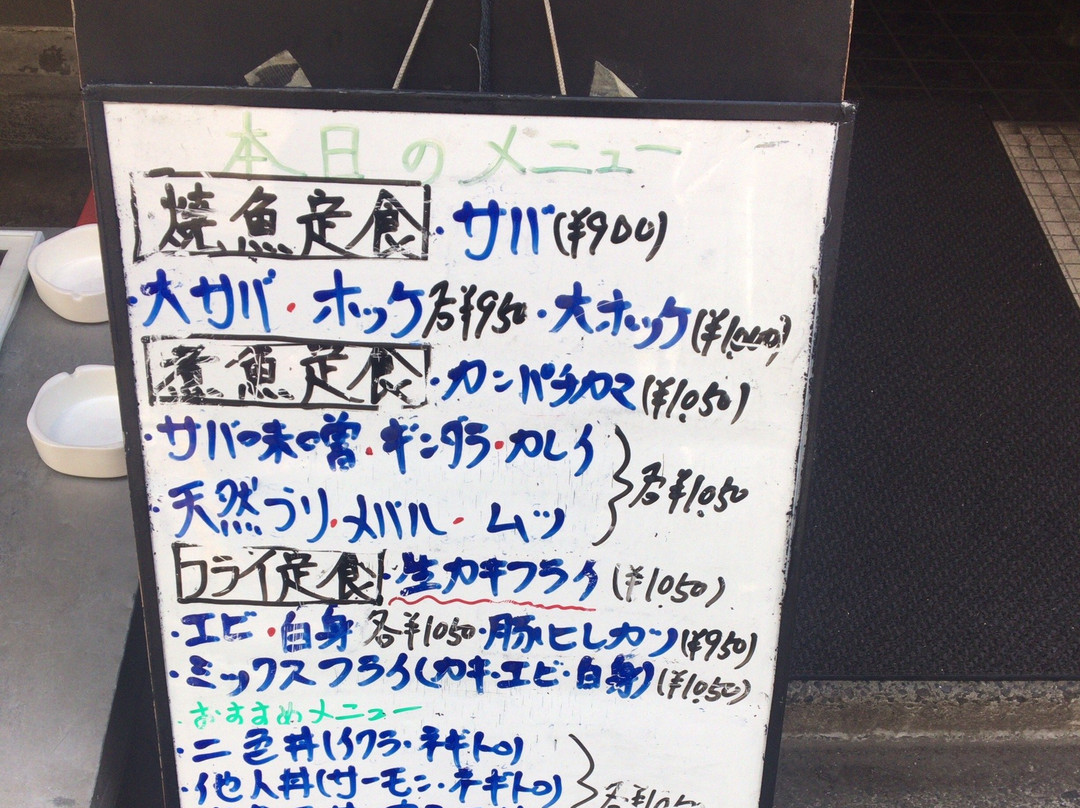 本日のメニュー
焼魚定食・サバ(¥900)
・大サバ・ホッケ各¥950・大ホッケ(¥1000)
煮魚定食・カンパチカマ(¥1050)
・サバの味噌・ギンダラ・カレイ
・天然ブリ・メバル・ムツ 各¥1050
フライ定食・生カキフライ(¥1050)
・エビ・白身各¥1050・豚ヒレカツ(¥950)
・ミックスフライ(カキ・エビ・白身)(¥1050)
・おすすめメニュー
・二色丼(イクラ・ネギトロ)
・他人丼(サーモン・ネギトロ)